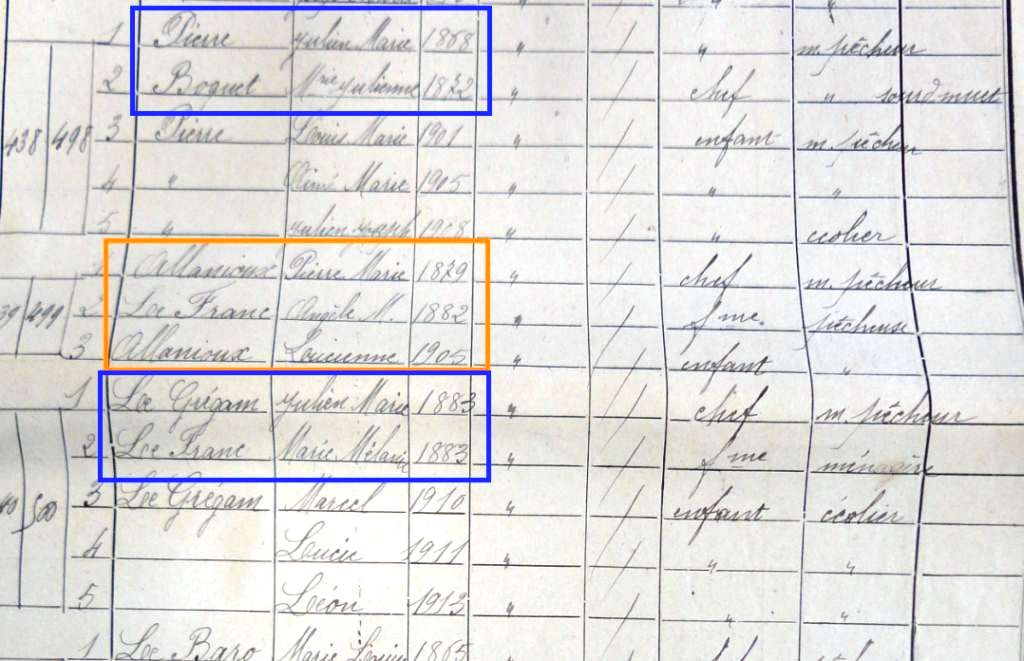 1 Pierre Julien Marie 1868 " / " m. pêcheur
2 Boguet Mrie Julienne 1872 " / chef " sourd muet
438 498 3 Pierre Louis Marie 1901 " / enfant m. pêcheur
4 " Aimé Marie 1905 " / " "
5 " Julien Joseph 1908 / " écolier
1 Allanioux Pierre Marie 1879 " / chef m. pêcheur
39 499 2 Le Franc Angèle M. 1882 " / fme. pêcheuse
3 Allanioux Lucienne 1905 " / enfant "
1 Le Grégam Julien Marie 1883 " / chef m. pêcheur
2 Le Franc Marie Mélanie 1883 " / fme ménagère
40 500 3 Le Grégam Marcel 1910 " / enfant écolier
4 Lucie 1911 " / " "
5 Léon 1913 " / " "
1 Le Baro Marie 1865